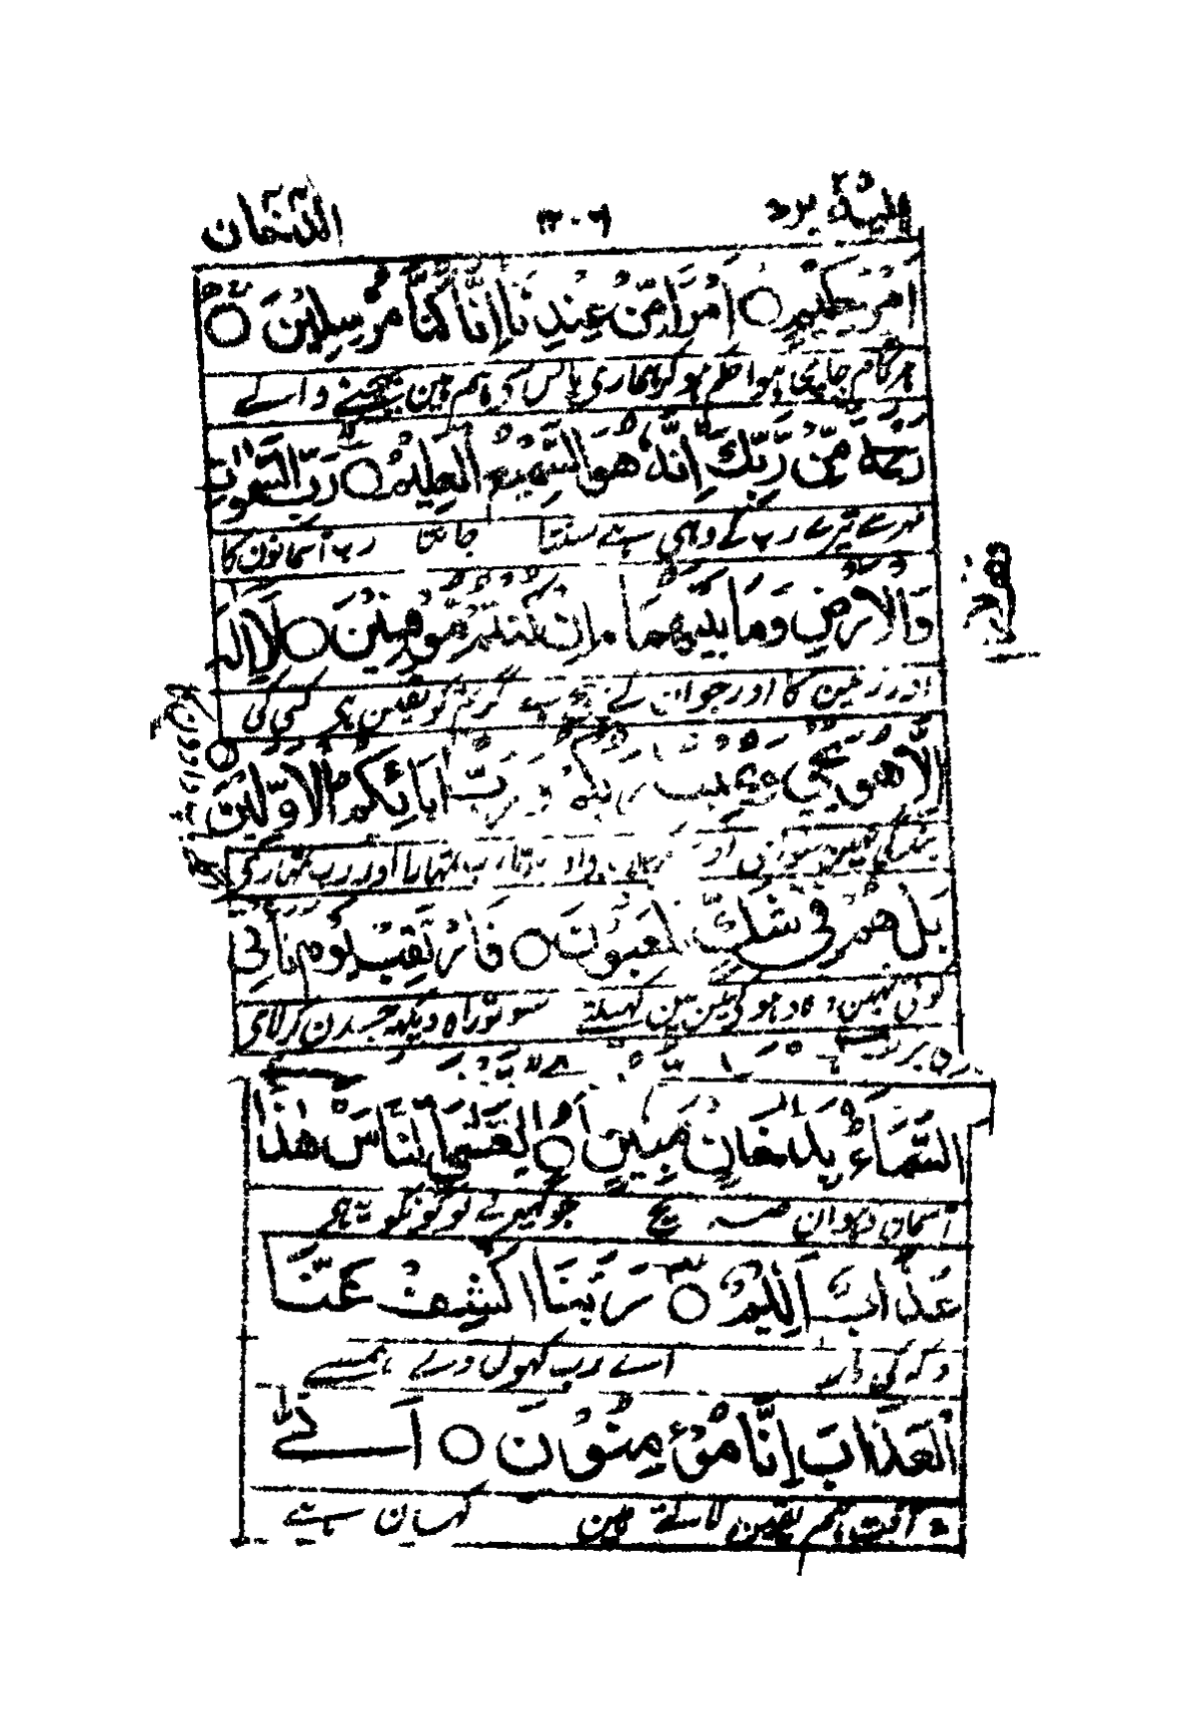 اليه يرد ٢٥ ١٢٠٦ الدّخان
اَمْرٍ حَكِيْمٍ ○ اَمْرًا مِّنْ عِنْدِنَا اِنَّا كُنَّا مُرْسِلِيْنَ ○
ہر کام جانچا ہوا حکم ہو کر ہماری پاس سی ہم ہین بھیجنے والے
رَحْمَةً مِّنْ رَّبِّكَ اِنَّهٗ هُوَ السَّمِيْعُ الْعَلِيْمُ ○ رَبِّ السَّمٰوٰتِ
مہر سے تیرے رب کے وہی ہے سنتا جانتا رب آسمانون کا
وَالْاَرْضِ وَمَا بَيْنَهُمَا اِنْ كُنْتُمْ مُّوْقِنِيْنَ ○ لَآ اِلٰهَ
اور زمین کا اور جو ان کے بیچ ہے گر تم کو یقین ہے کسی کی
اِلَّا هُوَ يُحْيٖ وَيُمِيْتُ رَبُّكُمْ وَرَبُّ اٰبَآئِكُمُ الْاَوَّلِيْنَ ○
بندگی نہین سوای رب تمہارا اور رب تمہاری
بَلْ هُمْ فِيْ شَكٍّ يَّلْعَبُوْنَ ○ فَارْتَقِبْ يَوْمَ تَاْتِي
کوئی نہین وہ دہوکی مین ہین کہیلتے سو تو راہ دیکھ جسدن کر لاوی
السَّمَآءُ بِدُخَانٍ مُّبِيْنٍ ○ يَّغْشَى النَّاسَ هٰذَا
آسمان دہوان صریح جو گھیرے لوگونکو یہ ہے
عَذَابٌ اَلِيْمٌ ○ رَبَّنَا اكْشِفْ عَنَّا
دکھ کی مار اے رب کھول دے ہمسے
الْعَذَابَ اِنَّا مُؤْمِنُوْنَ ○ اَنّٰى
یہ آفت ہم یقین لاتے ہین کہان ہے